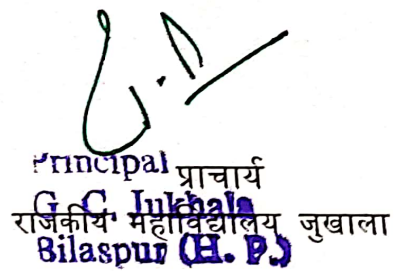 Principal
प्राचार्य
G. C. Jukhala
राजकीय महाविद्यालय जुखाला
Bilaspur (H. P.)